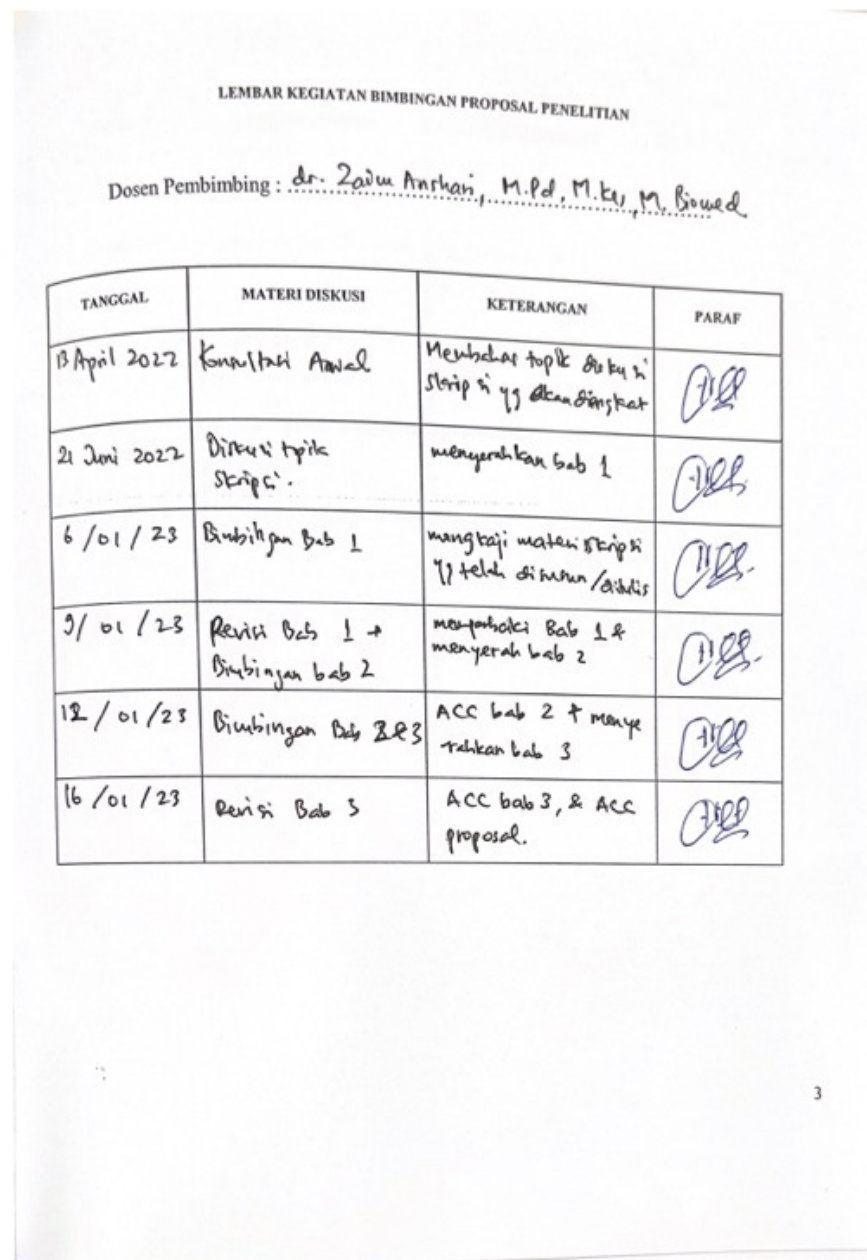 LEMBAR KEGIATAN BIMBINGAN PROPOSAL PENELITIAN
Dosen Pembimbing : dr. Zaim Anshari, M.Pd, M.Kes, M. Biomed
TANGGAL MATERI DISKUSI KETERANGAN PARAF
13 April 2022 Konsultasi Awal Membahas topik diskusi
skripsi yg akan diangkat
21 Juni 2022 Diskusi topik menyerahkan bab 1
skripsi.
6 /01 / 23 Bimbingan Bab 1 mengkaji materi skripsi
yg telah disusun /ditulis
9/ 01 / 23 Revisi Bab 1 + Bab 1 &
Bimbingan bab 2 menyerah bab 2
12 / 01 /23 Bimbingan Bab 2&3 ACC bab 2 + menye
rahkan bab 3
16 /01 / 23 Revisi Bab 3 ACC bab 3, & ACC
proposal.
3